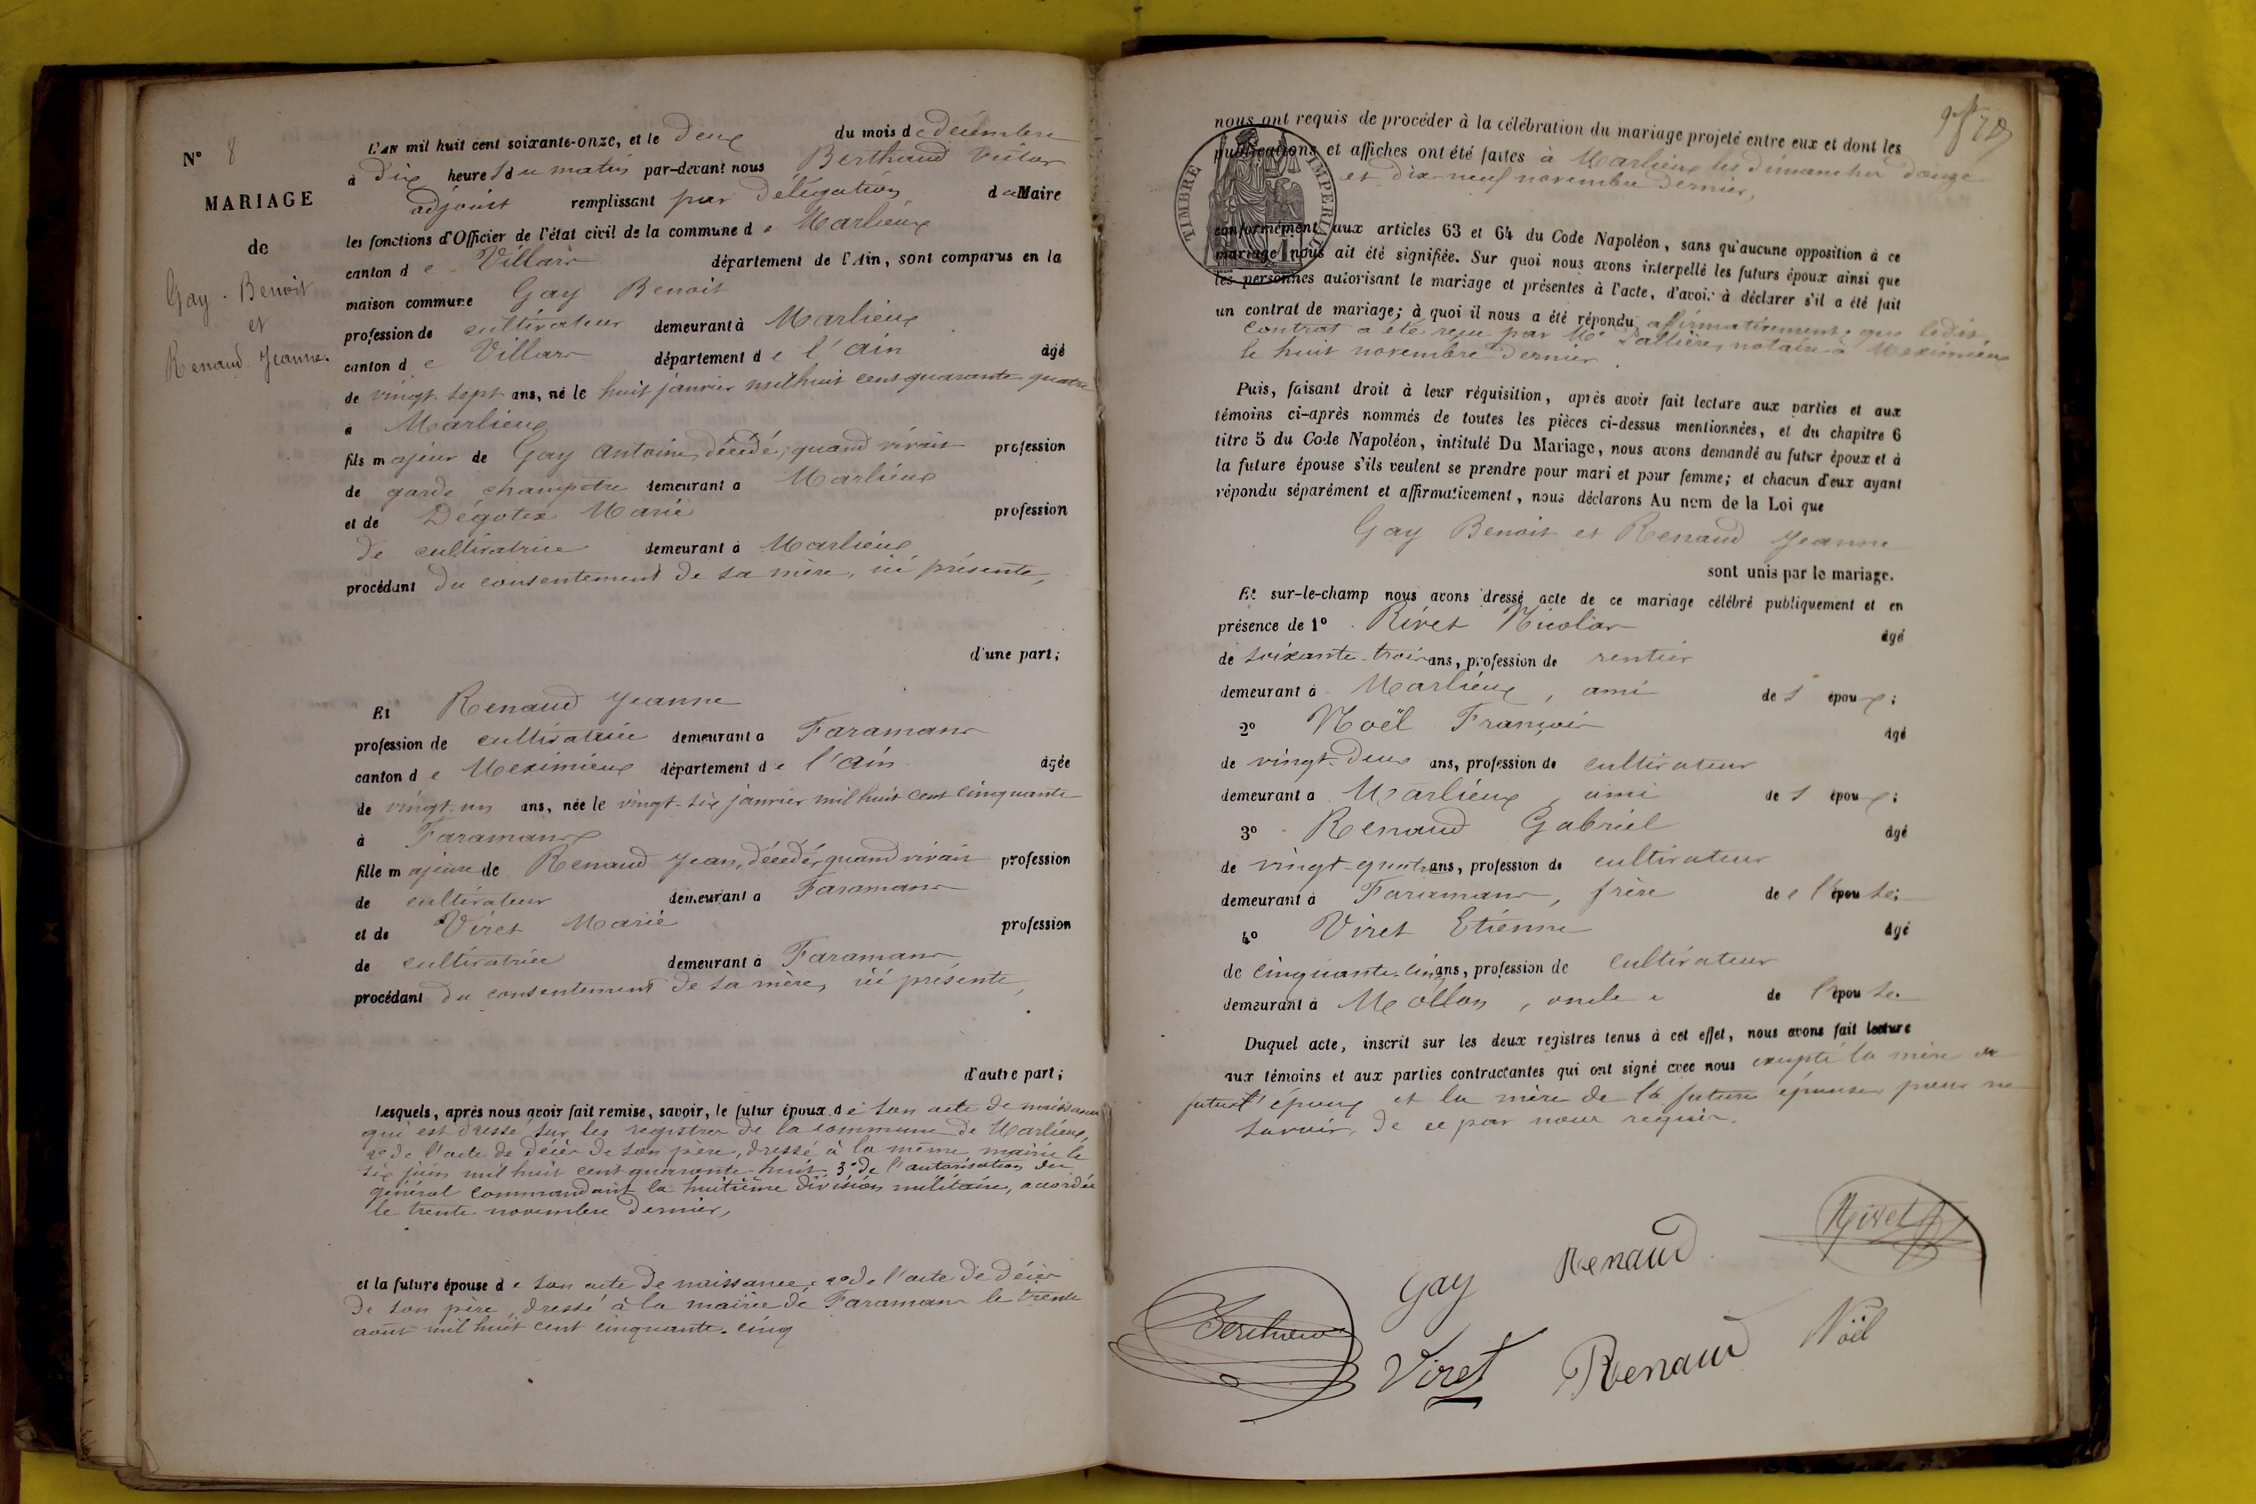 N° 8
MARIAGE
de
Gay - Benoit
et
Renaud Jeanne.
L'an mil huit cent soixante-onze, et le deux du mois de décembre
à dix heures du matin par-devant nous Berthaud Victor
adjoint remplissant par délégation du Maire
les fonctions d'Officier de l'état civil de la commune de Marlieux
canton de Villars département de l'Ain, sont comparus en la
maison commune Gay Benoit
profession de cultivateur demeurant à Marlieux
canton de Villars département de l'Ain âgé
de vingt-sept ans, né le huit janvier mil huit cent quarante-quatre
à Marlieux
fils majeur de Gay Antoine, décédé, quand vivait profession
de garde champêtre demeurant à Marlieux
et de Dégotex Marie profession
de cultivatrice demeurant à Marlieux
procédant du consentement de sa mère, ici présente,
d'une part;
Et Renaud Jeanne
profession de cultivatrice demeurant à Faramans
canton de Meximieux département de l'Ain âgée
de vingt-un ans, née le vingt-six janvier mil huit cent cinquante
à Faramans
fille majeure de Renaud Jean, décédé, quand vivait profession
de cultivateur demeurant à Faramans
et de Viret Marie profession
de cultivatrice demeurant à Faramans
procédant du consentement de sa mère, ici présente,
d'autre part;
Lesquels, après nous avoir fait remise, savoir, le futur époux de son acte de naissance
qui est dressé sur les registres de la commune de Marlieux,
2° de l'acte de décès de son père, dressé à la même mairie le
six juin mil huit cent quarante-huit, 3° de l'autorisation du
général commandant la huitième division militaire, accordée
le trente novembre dernier,
et la future épouse de son acte de naissance, 2° de l'acte de décès
de son père, dressé à la mairie de Faramans le trente
août mil huit cent cinquante-cinq
nous ont requis de procéder à la célébration du mariage projeté entre eux et dont les
publications et affiches ont été faites à Marlieux les dimanches douze
et dix-neuf novembre dernier,
TIMBRE IMPERIAL
conformément aux articles 63 et 64 du Code Napoléon, sans qu'aucune opposition à ce
mariage nous ait été signifiée. Sur quoi nous avons interpellé les futurs époux ainsi que
les personnes autorisant le mariage et présentes à l'acte, d'avoir à déclarer s'il a été fait
un contrat de mariage; à quoi il nous a été répondu affirmativement, que ledit
contrat a été reçu par Me notaire à Meximieux
le huit novembre dernier
Puis, faisant droit à leur réquisition, après avoir fait lecture aux parties et aux
témoins ci-après nommés de toutes les pièces ci-dessus mentionnées, et du chapitre 6
titre 5 du Code Napoléon, intitulé Du Mariage, nous avons demandé au futur époux et à
la future épouse s'ils veulent se prendre pour mari et pour femme; et chacun d'eux ayant
répondu séparément et affirmativement, nous déclarons Au nom de la Loi que
Gay Benoit et Renaud Jeanne
sont unis par le mariage.
Et sur-le-champ nous avons dressé acte de ce mariage célébré publiquement et en
présence de 1° Rivet Nicolas âgé
de soixante-trois ans, profession de rentier
demeurant à Marlieux, ami de l'époux;
2° Noël François âgé
de vingt-deux ans, profession de cultivateur
demeurant à Marlieux, ami de l'époux;
3° Renaud Gabriel âgé
de vingt-quatre ans, profession de cultivateur
demeurant à Faramans, frère de l'épouse;
4° Viret Etienne âgé
de cinquante-cinq ans, profession de cultivateur
demeurant à Mollon, oncle de l'épouse.
Duquel acte, inscrit sur les deux registres tenus à cet effet, nous avons fait lecture
aux témoins et aux parties contractantes qui ont signé avec nous excepté la mère du
futur époux et la mère de la future épouse pour ne
savoir, de ce par nous requis.
Rivet
Renaud
Gay
Berthaud
Noël
Viret
Renaud